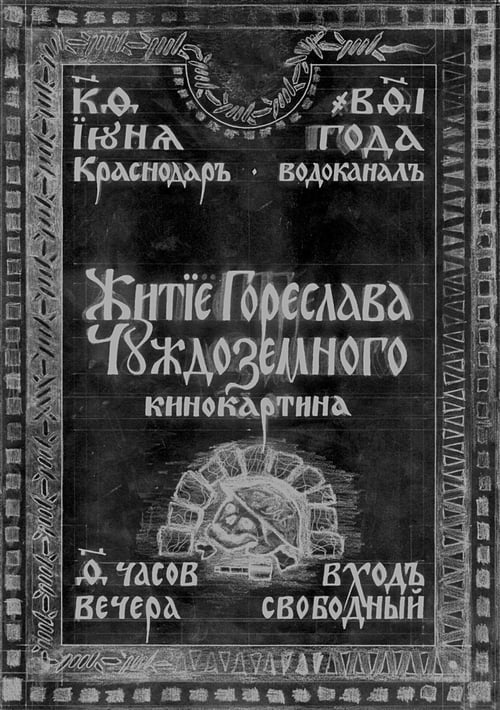 К҃Ѳ ҂ВѲ҃І
ЇЮНѦ ГОДА
Краснодаръ · водоканалъ
Житїе Гореслава
Чꙋждоземного
кинокартина
Ѳ҃ часов входъ
вечера свободный